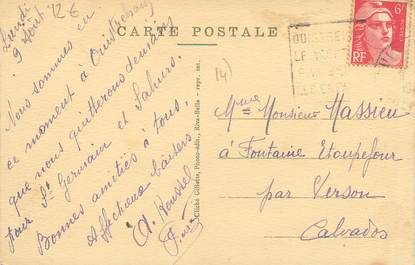 CARTE POSTALE
12 €
(14)
Lundi
9 Août
Nous sommes en
ce moment à Ouistreham
que nous quitterons demain
pour St Germain et
Bonnes amitiés à tous.
Affectueux baisers
Cliché Gilbein, Photo-édit., Riva-Bella - repr. int.
6F
RF
Mme & Monsieur Massieu
à Fontaine Etoupefour
par Verson
Calvados